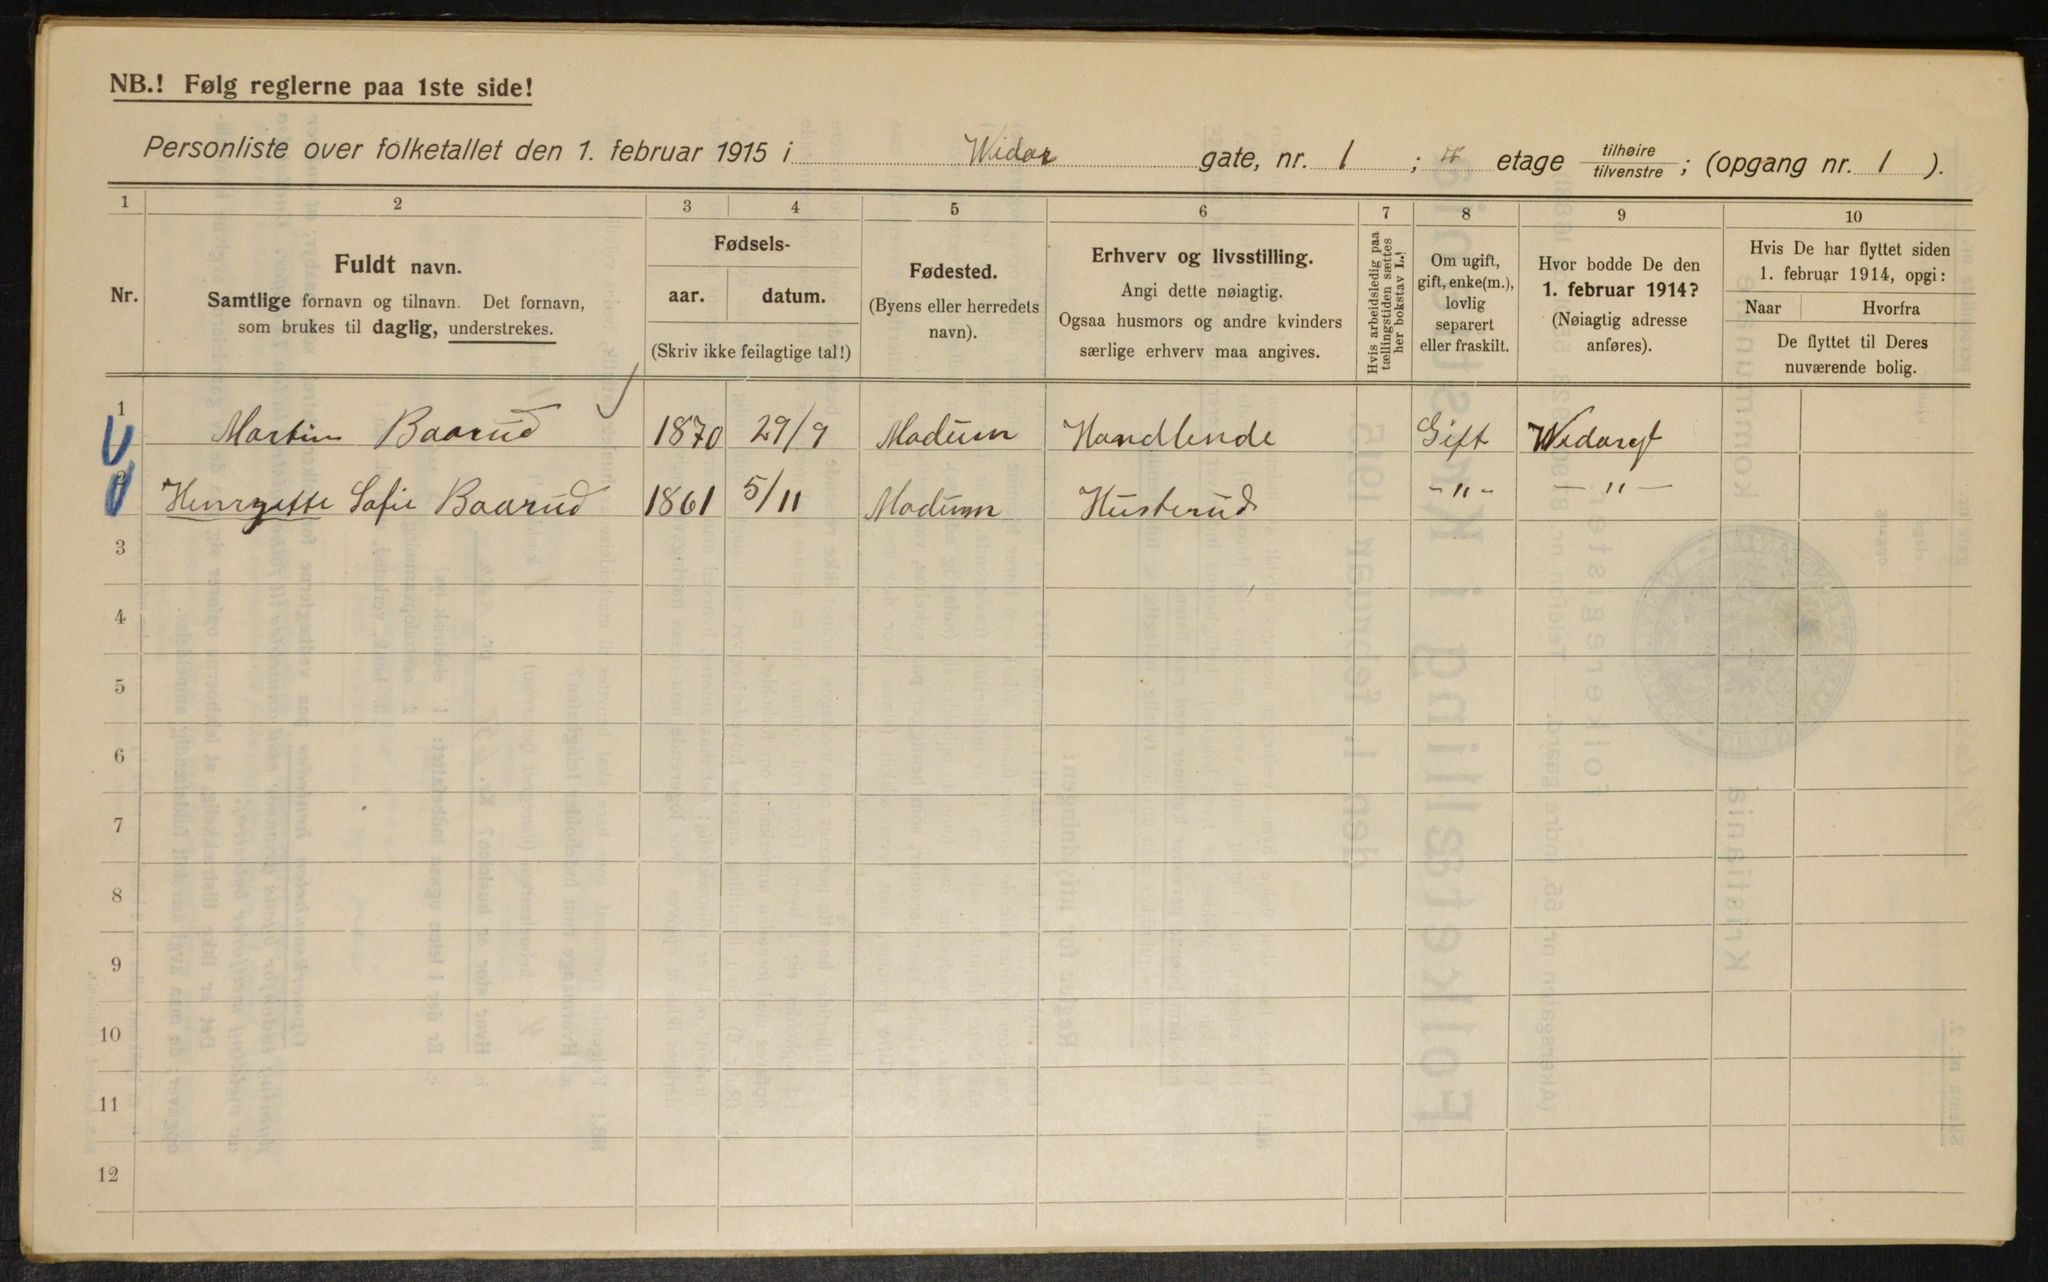 NB.! Følg reglerne paa 1ste side!
Personliste over folketallet den 1. februar 1915 i Widar gate, nr. 1 ; etage tilhøire/tilvenstre ; (opgang nr. 1 ).
1 2 3 4 5 6 7 8 9 10
Nr.
Fuldt navn.
Samtlige fornavn og tilnavn. Det fornavn,
som brukes til daglig, understrekes.
Fødsels-
aar. datum.
(Skriv ikke feilagtige tal!)
Fødested.
(Byens eller herredets
navn).
Erhverv og livsstilling.
Angi dette nøiagtig.
Ogsaa husmors og andre kvinders
særlige erhverv maa angives.
Hvis arbeidsledig paa
tællingstiden sættes
her bokstav L.!
Om ugift,
gift, enke(m.),
lovlig
separert
eller fraskilt.
Hvor bodde De den
1. februar 1914?
(Nøiagtig adresse
anføres).
Hvis De har flyttet siden
1. februar 1914, opgi:
Naar Hvorfra
De flyttet til Deres
nuværende bolig.
1 Martin Baarud 1870 29/9 Modum Handlende Gift Widargt
2 Henryette Sofie Baarud 1861 5/11 Modum Husterud -"- -"-
3
4
5
6
7
8
9
10
11
12